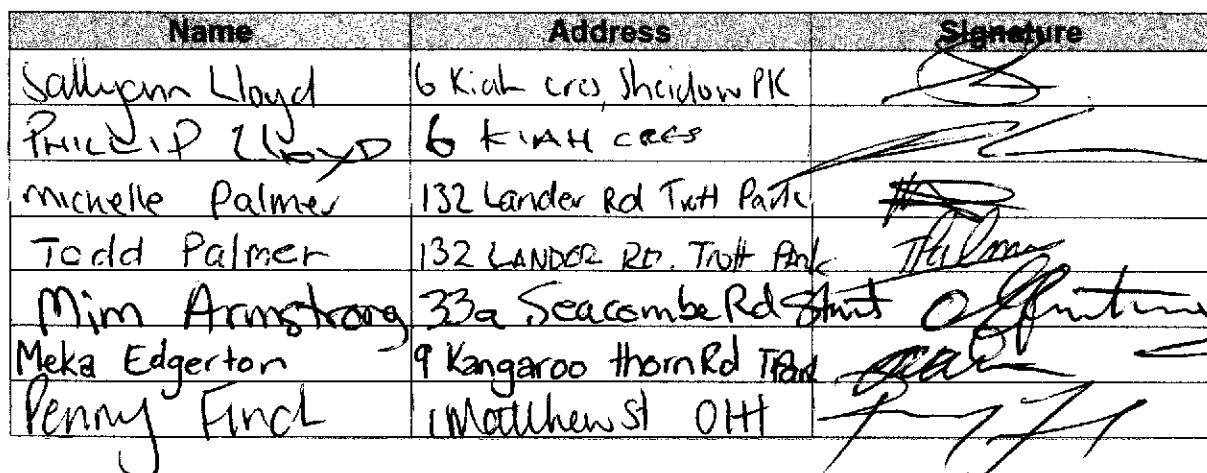 Name Address Signature
Sallyann Lloyd 6 Kiah cres, Sheidow PK
PHILLIP LLOYD 6 KIAH CRES
Michelle Palmer 132 Lander Rd Trott Park
Todd Palmer 132 LANDER RD. Trott Park TPalmer
Mim Armstrong 33a Seacombe Rd Sturt
Meka Edgerton 9 Kangaroo thorn Rd TPark
Penny Finch 1 Matthew St OHH